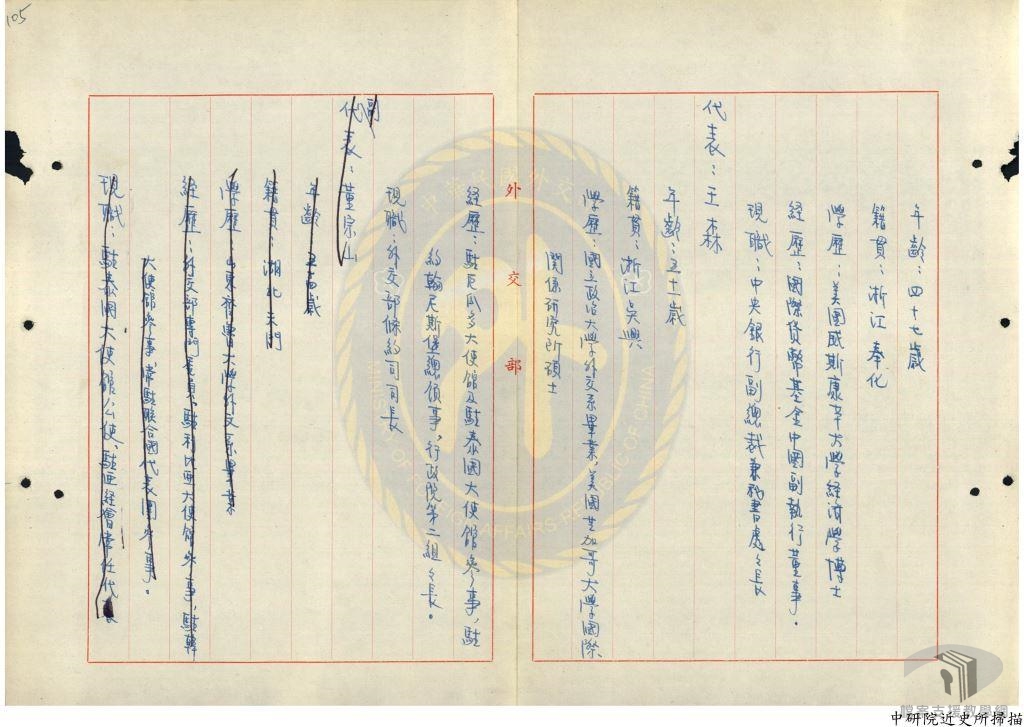 105
年齡：四十七歲
籍貫：浙江奉化
學歷：美國威斯康辛大學經濟學博士
經歷：國際貨幣基金中國副執行董事。
現職：中央銀行副總裁兼秘書處處長
代表：王森
年齡：五十一歲
籍貫：浙江吳興
學歷：國立政治大學外交系畢業，美國芝加哥大學國際
關係研究所碩士
外交部
經歷：駐厄瓜多大使館及駐泰國大使館參事，駐
約翰尼斯堡總領事，行政院第二組組長。
現職：外交部條約司司長
副代表：董宗山
年齡：五十高歲
籍貫：湖北天門
學歷：山東齊魯大學外文系畢業
經歷：外交部專門委員，駐利比亞大使館參事，駐韓
大使館參事，常駐聯合國代表團參事。
現職：駐泰國大使館公使、駐亞經會常任代表
中華民國外交
MINISTRY OF FOREIGN AFFAIRS·REPUBLIC OF CHINA
檔案支援教學網
中研院近史所掃描